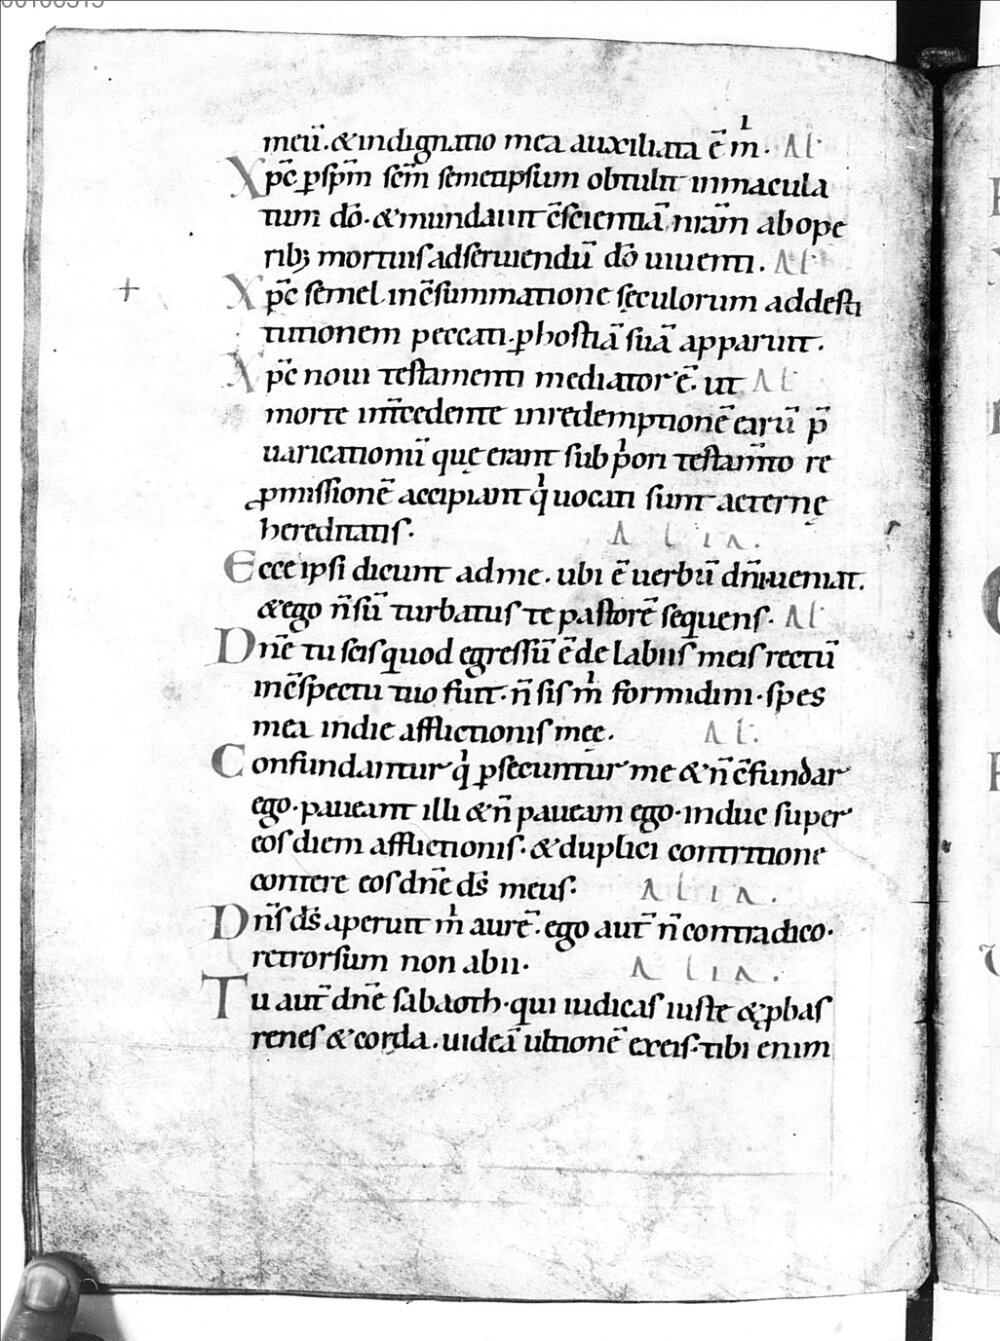 00106515
meū. &indignatio mea auxiliata ē m̄ı. Al̄
Xp̄c ꝑsp̄m sc̄m semetipsum obtulit inmacula
tum dō. &mundauit c̄scientiā nrām abope
ribꝫ mortuis adseruiendū dō uiuenti. Al̄
Xp̄c semel inc̄summatione sęculorum addesti
tutionem peccati. ꝑhostiā suā apparuit.
Xp̄c noui testamenti mediator ē. ut Al̄
morte int̄cedente inredemptionē earū p̄
uaricationū quę erant sub p̍ori testam̄to re
ꝓmissionē accipiant q̍ uocati sunt aeternę
hereditatis. Alia.
Ecce ipsi dicunt adme. ubi ē uerbū dn̄i. ueniat.
&ego n̄ sū turbatus te pastorē sequens. Al̄
Dn̄e tu scis quod egressū ē de labiis meis rectū
inc̄spectu tuo fuit. n̄ sis m̍ formidini. spes
mea indie afflictionis meę. Al̄.
Confundantur q̍ ꝑsecuntur me & n̄ c̄fundar
ego. paueant illi & n̄ paueam ego. induc super
eos diem afflictionis. &duplici contritione
contere eos dn̄e ds̄ meus. Alia.
Dn̄s ds̄ aperuit m̍ aurē. ego aut̄ n̄ contradico.
retrorsum non abii. Alia.
Tu aut̄ dn̄e sabaoth. qui iudicas iuste & ꝓbas
renes & corda. uideā ultionē exeis. tibi enim